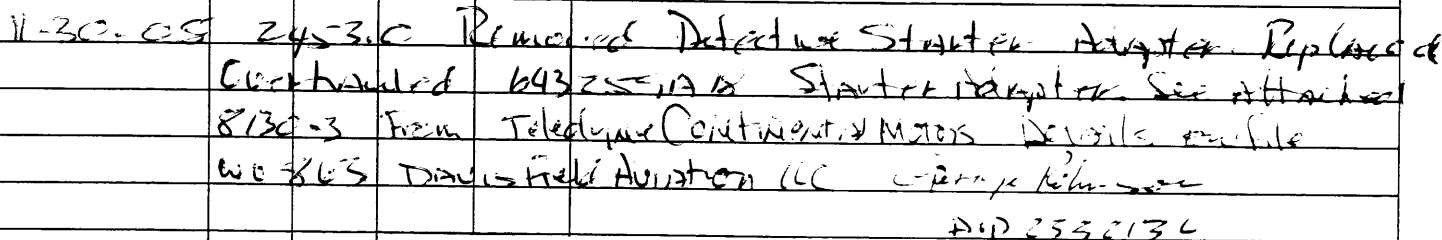 11-30-05 2453.0 Removed Defective Starter Adapter Replaced
Overhauled Starter Adapter See Attached
8130-3 From Teledyne Continental Motors Details on file
WO Davis Field Aviation LLC